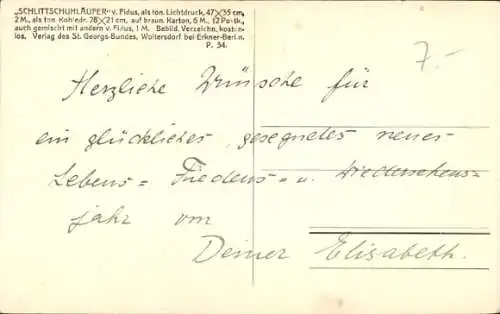 „SCHLITTSCHUHLÄUFER" v. Fidus, als ton. Lichtdruck, 47×35 cm,
2 M., als ton. Kohledr. 28×21 cm, auf braun. Karton, 6 M., 12 Postk.,
auch gemischt mit andern v. Fidus, 1 M. Bebild. Verzeichn. kosten-
los. Verlag des St. Georgs-Bundes, Woltersdorf bei Erkner-Berlin.
P. 34.
7.-
Herzliche Wünsche für
ein glückliches, gesegnetes neues
Lebens= Friedens= u. Wiedersehens=
jahr von
Deiner Elisabeth.